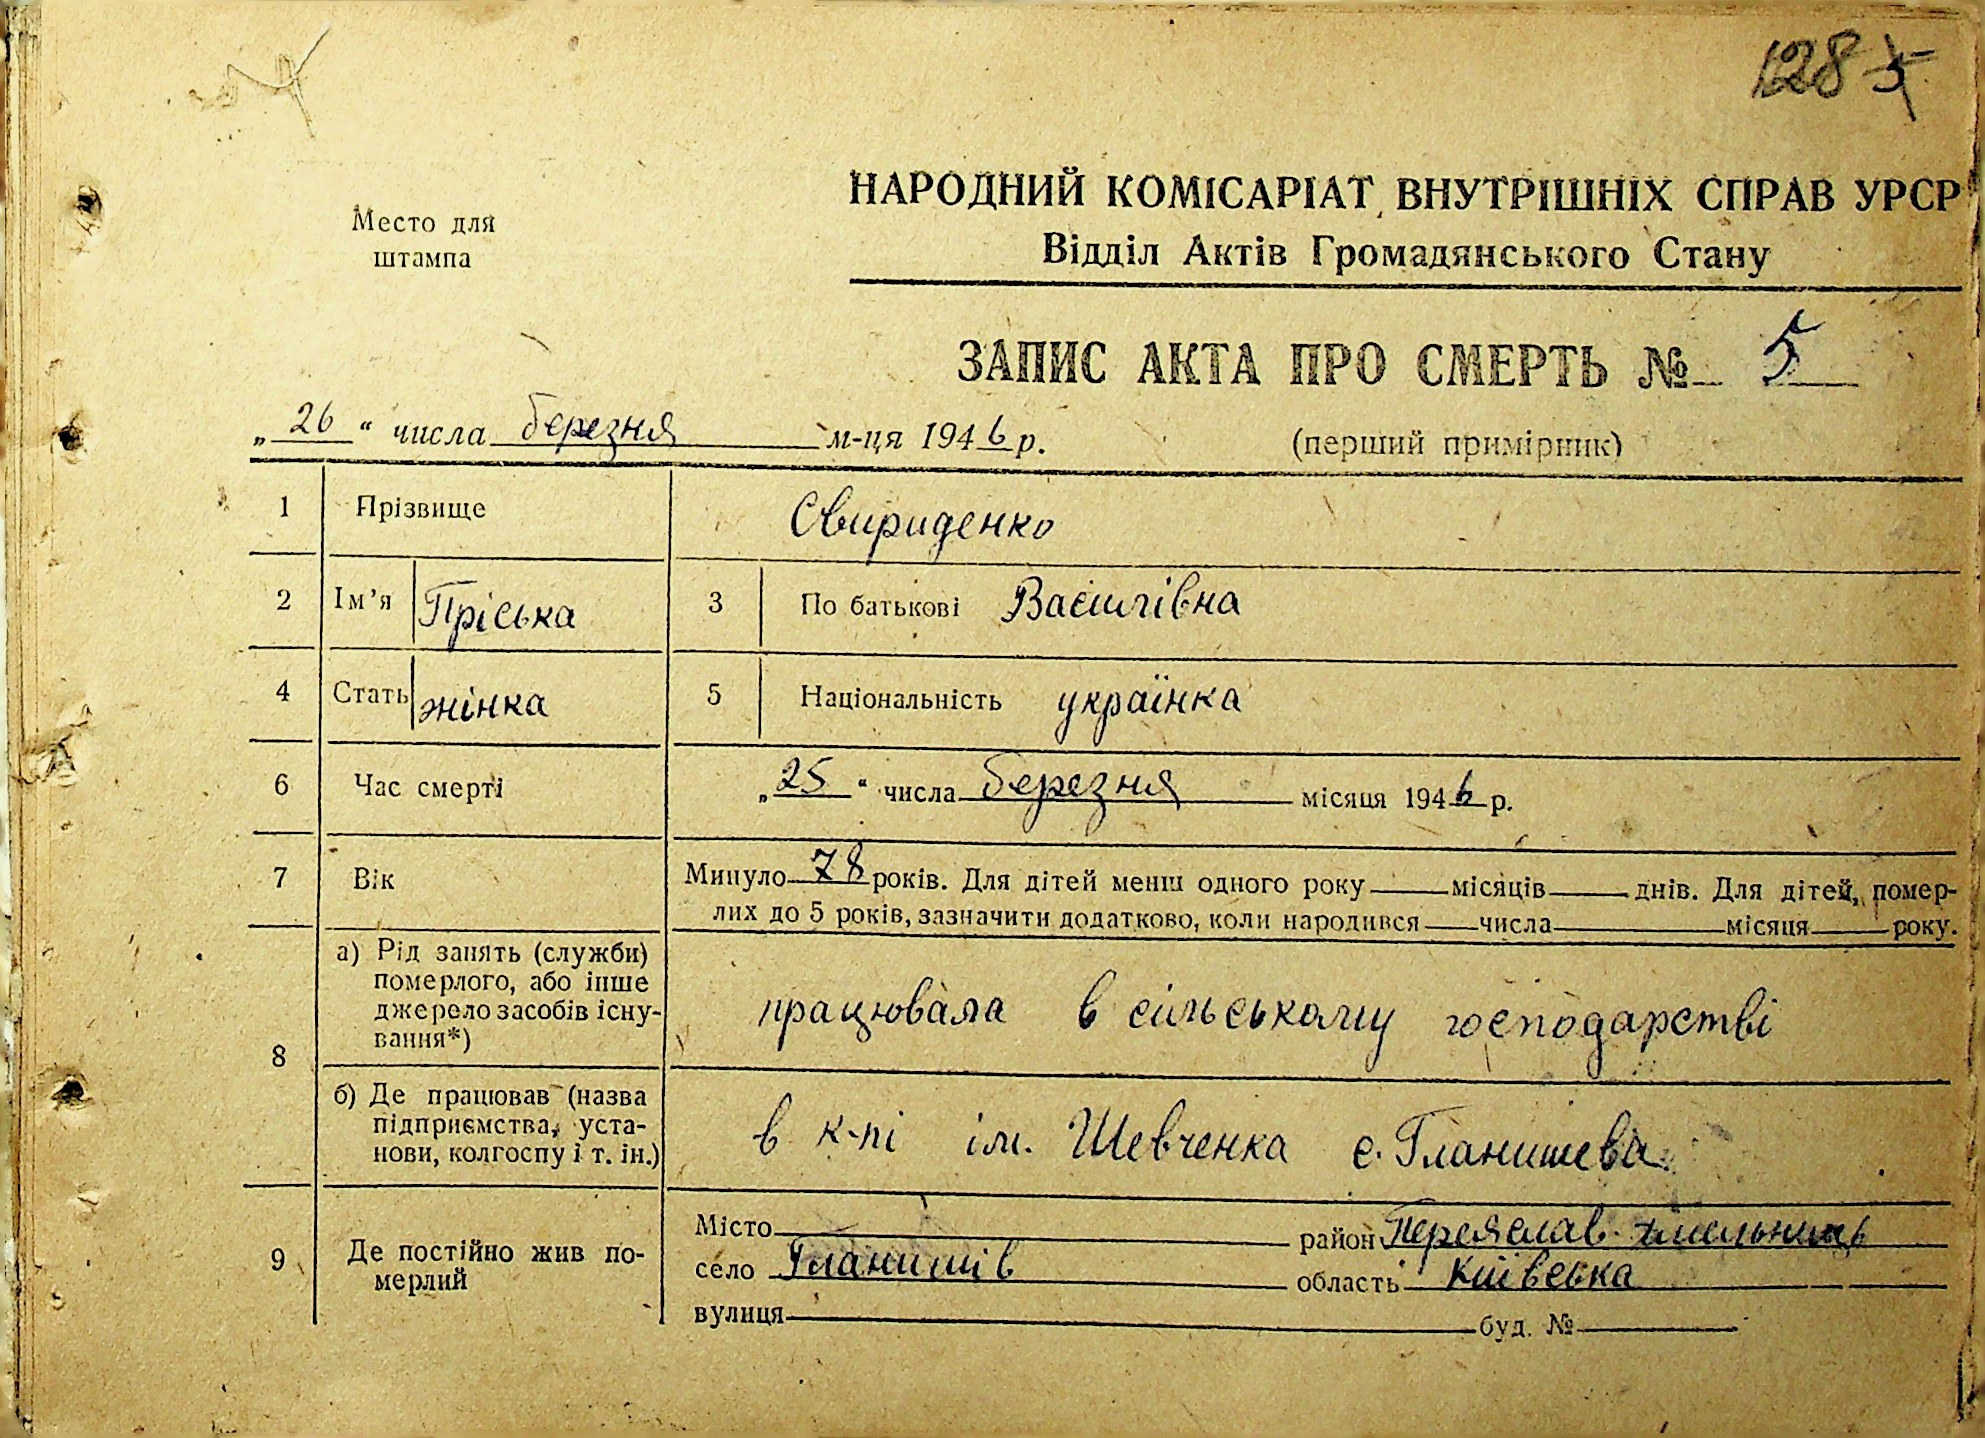 128 5
Место для
штампа
НАРОДНИЙ КОМІСАРІАТ ВНУТРІШНІХ СПРАВ УРСР
Відділ Актів Громадянського Стану
ЗАПИС АКТА ПРО СМЕРТЬ № 5
„26“ числа березня м-ця 1946 р.
(перший примірник)
1 Прізвище Свириденко
2 Ім'я Пріська 3 По батькові Василівна
4 Стать жінка 5 Національність українка
6 Час смерті „25“ числа березня місяця 1946 р.
7 Вік Минуло 78 років. Для дітей менш одного року місяців днів. Для дітей, помер-
лих до 5 років, зазначити додатково, коли народився числа місяця року.
8 а) Рід занять (служби)
померлого, або інше
джерело засобів існу-
вання*)
працювала в сільському господарстві
б) Де працював (назва
підприємства, уста-
нови, колгоспу і т. ін.)
в к-пі ім. Шевченка с. Гланишева
9 Де постійно жив по-
мерлий
Місто район Переяслав-Хмельниць
село Гланишів область Київська
вулиця буд. №